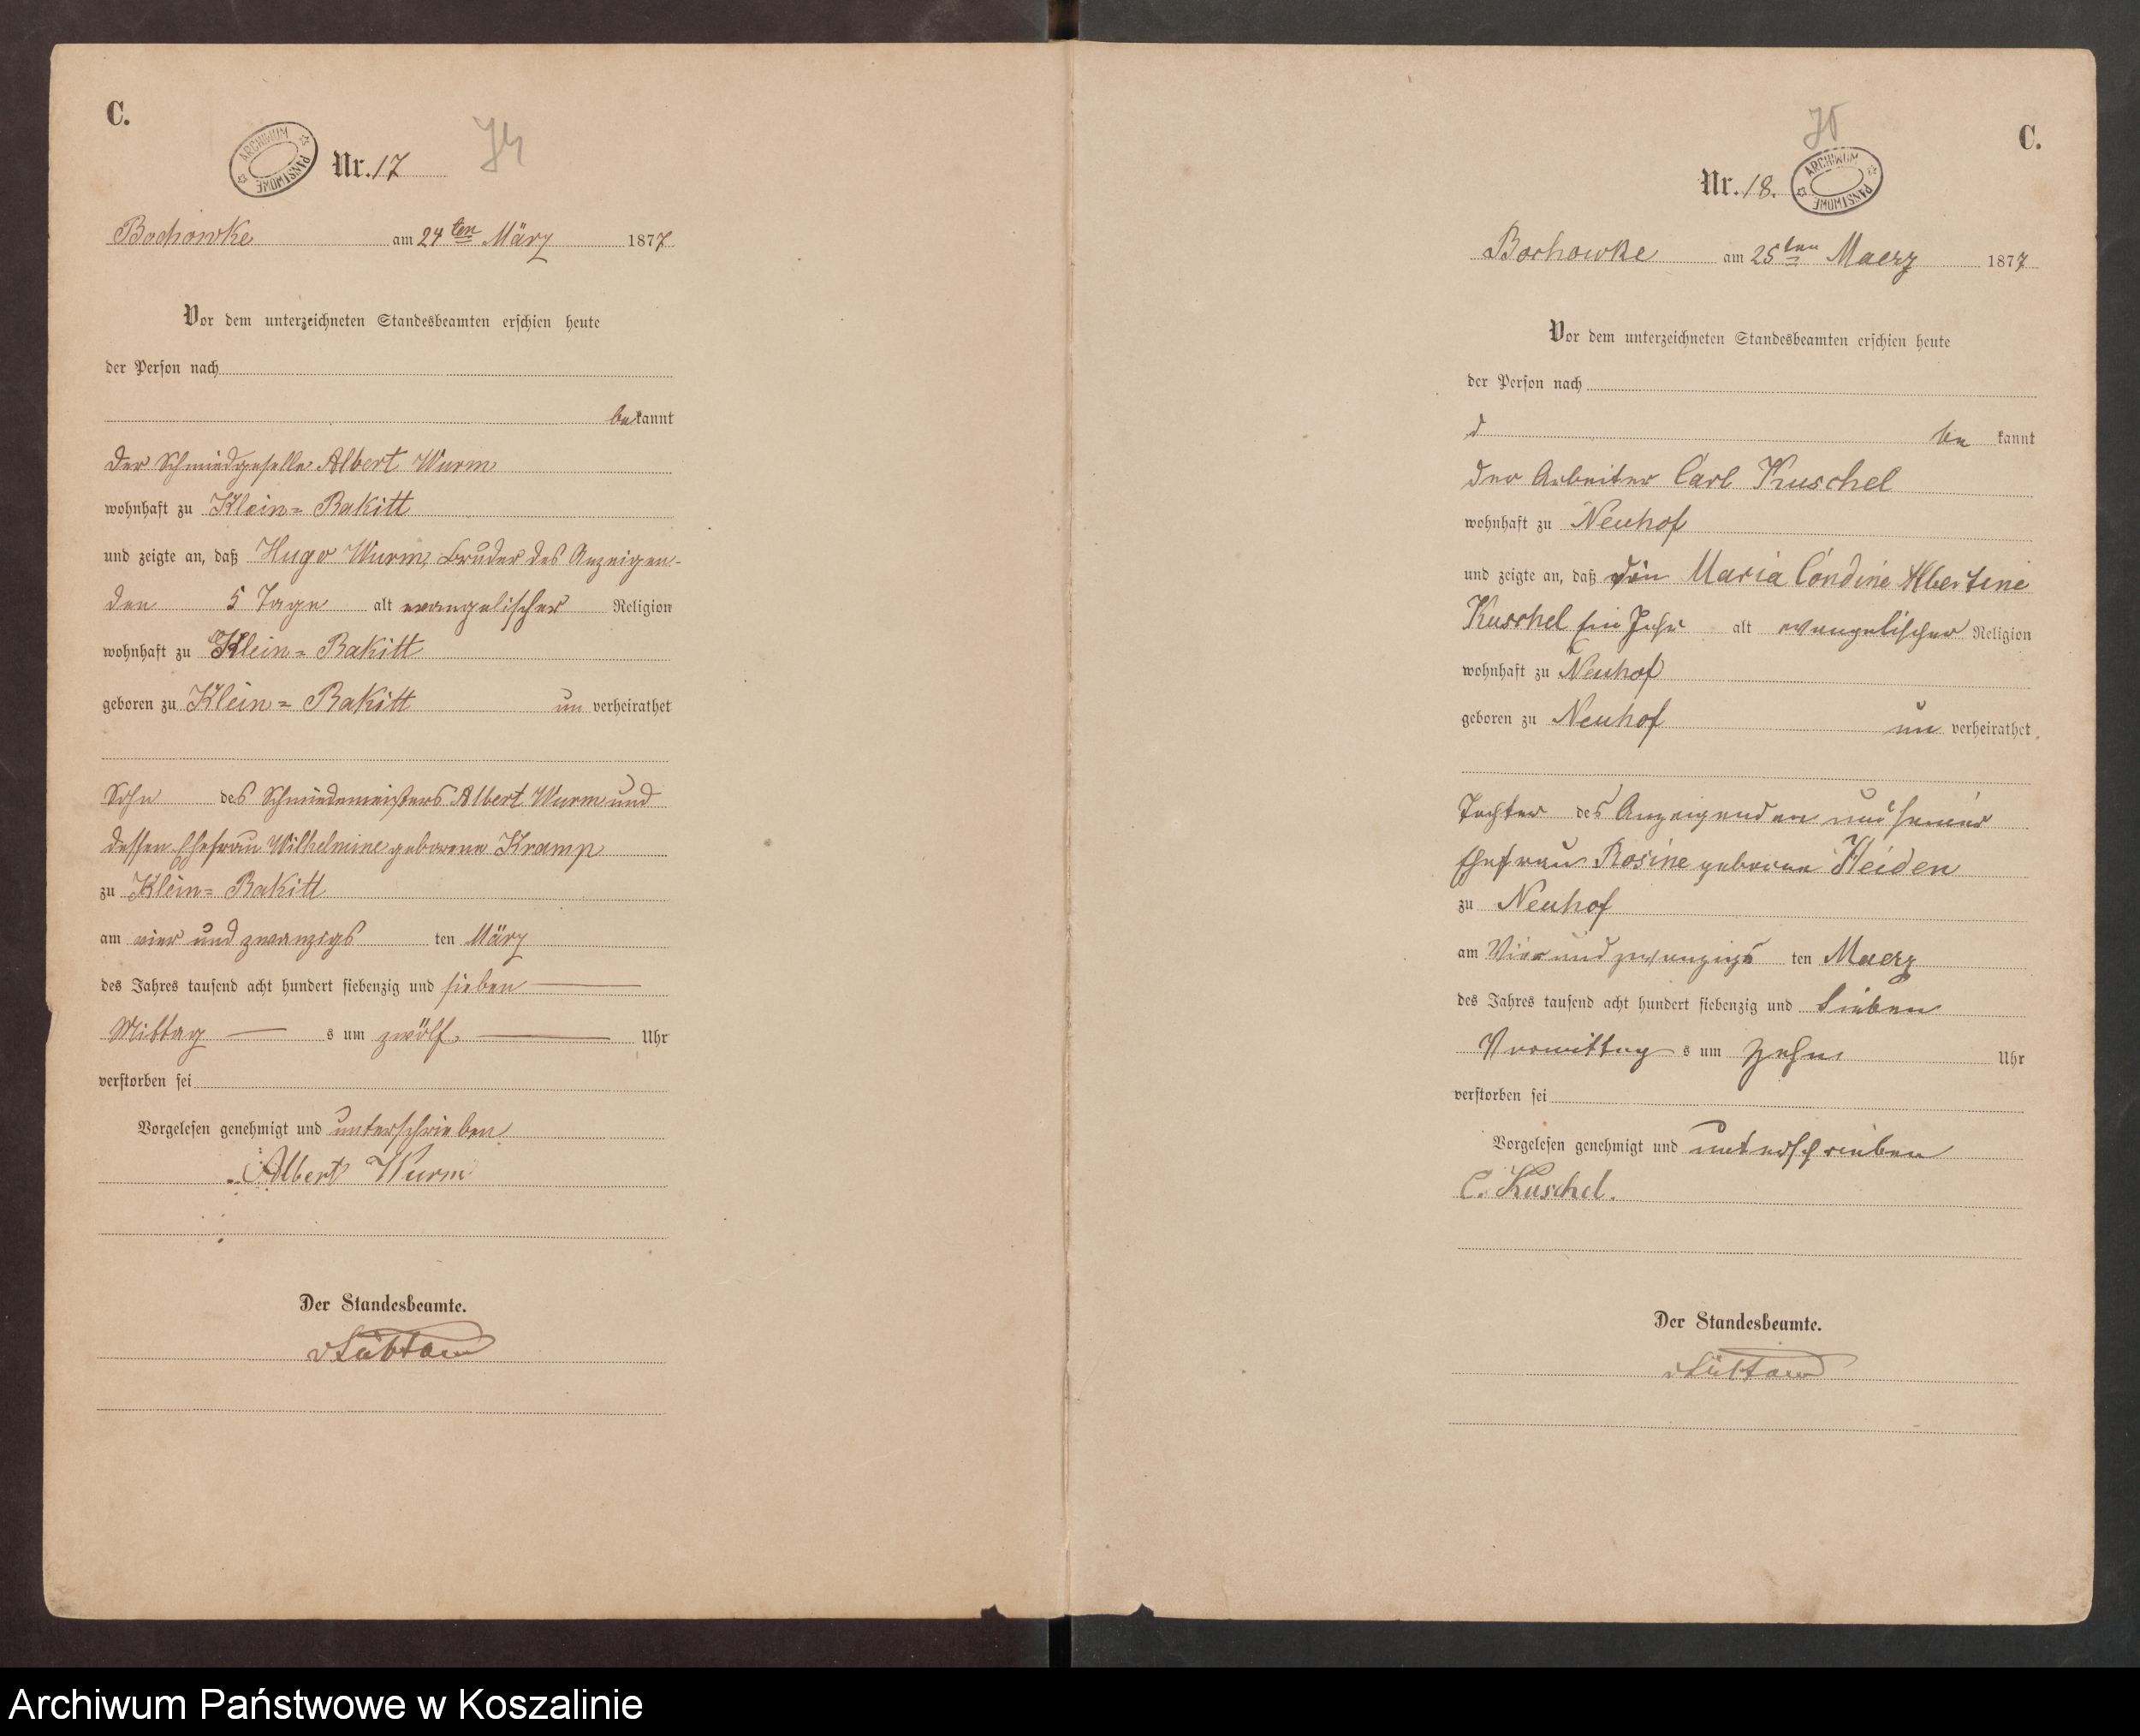 C.
ARCHIWUM PAŃSTWOWE
Nr. 17
74
Bochowke am 24ten März 1877
Vor dem unterzeichneten Standesbeamten erschien heute
der Person nach
bekannt
der Schmiedgeselle Albert Wurm
wohnhaft zu Klein=Rakitt
und zeigte an, daß Hugo Wurm, Bruder des Anzeigen-
den 5 Tage alt evangelischer Religion
wohnhaft zu Klein=Rakitt
geboren zu Klein=Rakitt un verheirathet
Sohn des Schmiedemeisters Albert Wurm und
dessen Ehefrau Wilhelmine geborene Kramp
zu Klein=Rakitt
am vier und zwanzigs ten März
des Jahres tausend acht hundert siebenzig und sieben
Mittag s um zwölf Uhr
verstorben sei
Vorgelesen genehmigt und unterschrieben
Albert Wurm
Der Standesbeamte.
C.
75
Nr. 18.
ARCHIWUM PAŃSTWOWE
Bochowke am 25ten Maerz 1877
Vor dem unterzeichneten Standesbeamten erschien heute
der Person nach
d be kannt
der Arbeiter Carl Kuschel
wohnhaft zu Neuhof
und zeigte an, daß die Maria Albertine
Kuschel Ein Jahr alt evangelischer Religion
wohnhaft zu Neuhof
geboren zu Neuhof un verheirathet
Tochter des Anzeigenden und seiner
Ehefrau Rosine geborne Heiden
zu Neuhof
am Vier und zwanzigs ten Maerz
des Jahres tausend acht hundert siebenzig und Sieben
Vormittag s um Zehn Uhr
verstorben sei
Vorgelesen genehmigt und unterschrieben
C. Kuschel.
Der Standesbeamte.
Archiwum Państwowe w Koszalinie